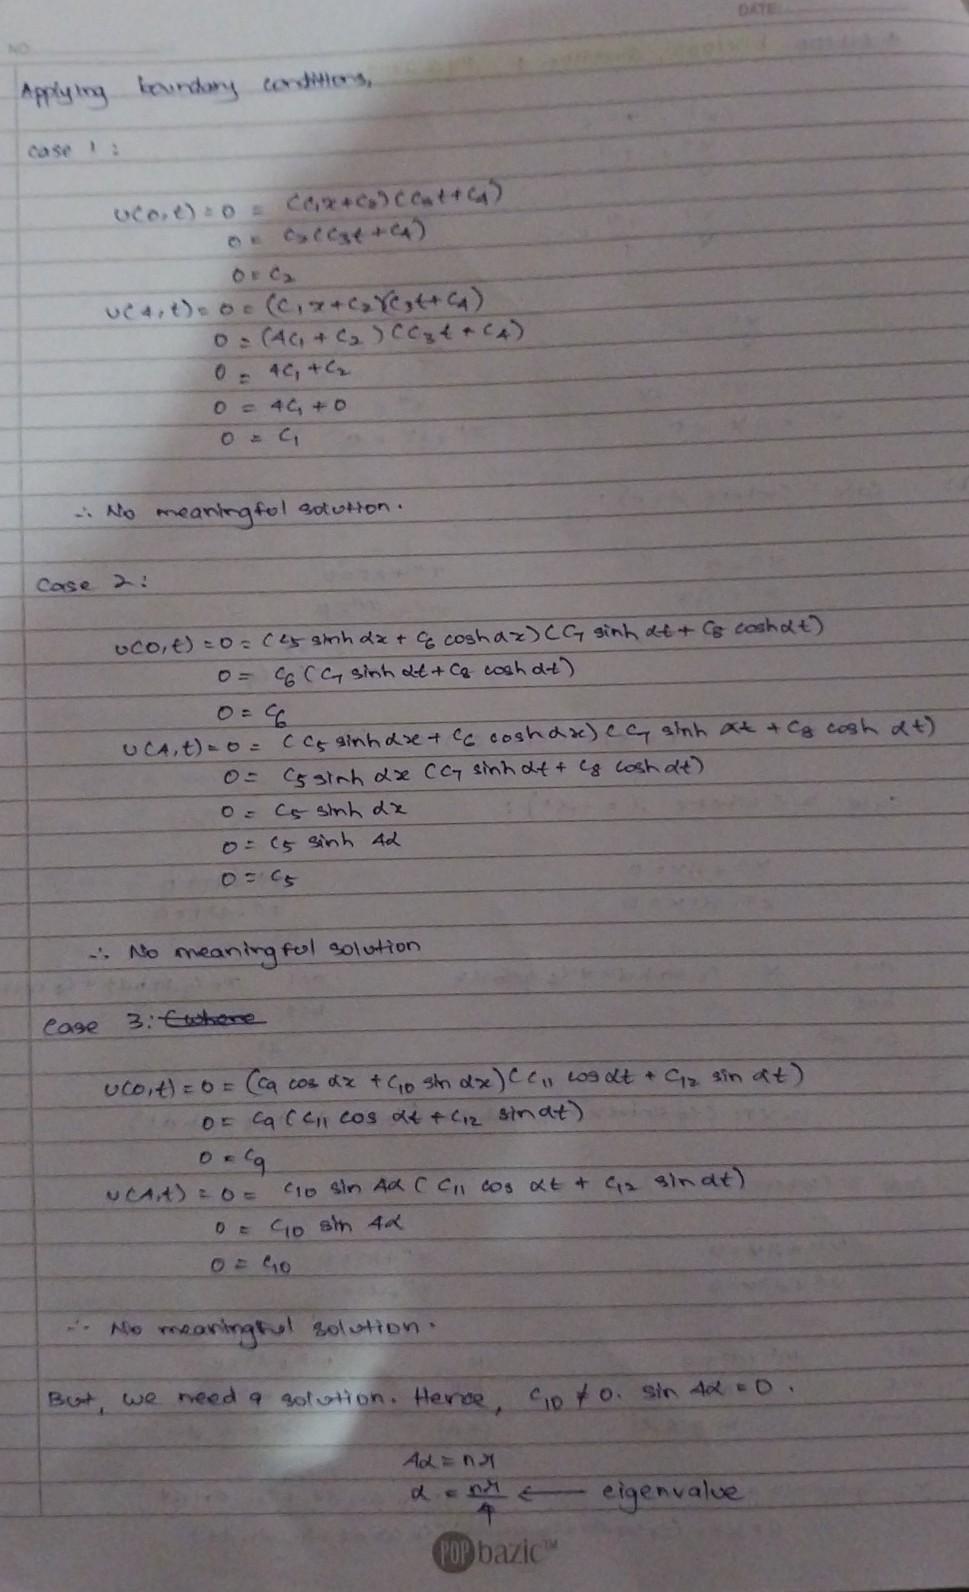 DATE:
NO
Applying boundary conditions,
case 1:
u(0,t) = 0 = (c₁x+c₂)(c₃t+c₄)
0 = c₂(c₃t+c₄)
0 = c₂
u(4,t) = 0 = (c₁x+c₂)(c₃t+c₄)
0 = (4c₁+c₂)(c₃t+c₄)
0 = 4c₁+c₂
0 = 4c₁+0
0 = c₁
∴ No meaningful solution.
Case 2:
u(0,t) = 0 = (c₅ sinh αx + c₆ cosh αx)(c₇ sinh αt + c₈ cosh αt)
0 = c₆(c₇ sinh αt + c₈ cosh αt)
0 = c₆
u(4,t) = 0 = (c₅ sinh αx + c₆ cosh αx)(c₇ sinh αt + c₈ cosh αt)
0 = c₅ sinh αx (c₇ sinh αt + c₈ cosh αt)
0 = c₅ sinh αx
0 = c₅ sinh 4α
0 = c₅
∴ No meaningful solution
Case 3: (where
u(0,t) = 0 = (c₉ cos αx + c₁₀ sin αx)(c₁₁ cos αt + c₁₂ sin αt)
0 = c₉(c₁₁ cos αt + c₁₂ sin αt)
0 = c₉
u(4,t) = 0 = c₁₀ sin 4α (c₁₁ cos αt + c₁₂ sin αt)
0 = c₁₀ sin 4α
0 = c₁₀
∴ No meaningful solution.
But, we need a solution. Hence, c₁₀ ≠ 0. sin 4α = 0.
4α = nπ
α = nπ/4 ← eigenvalue
POP bazic™